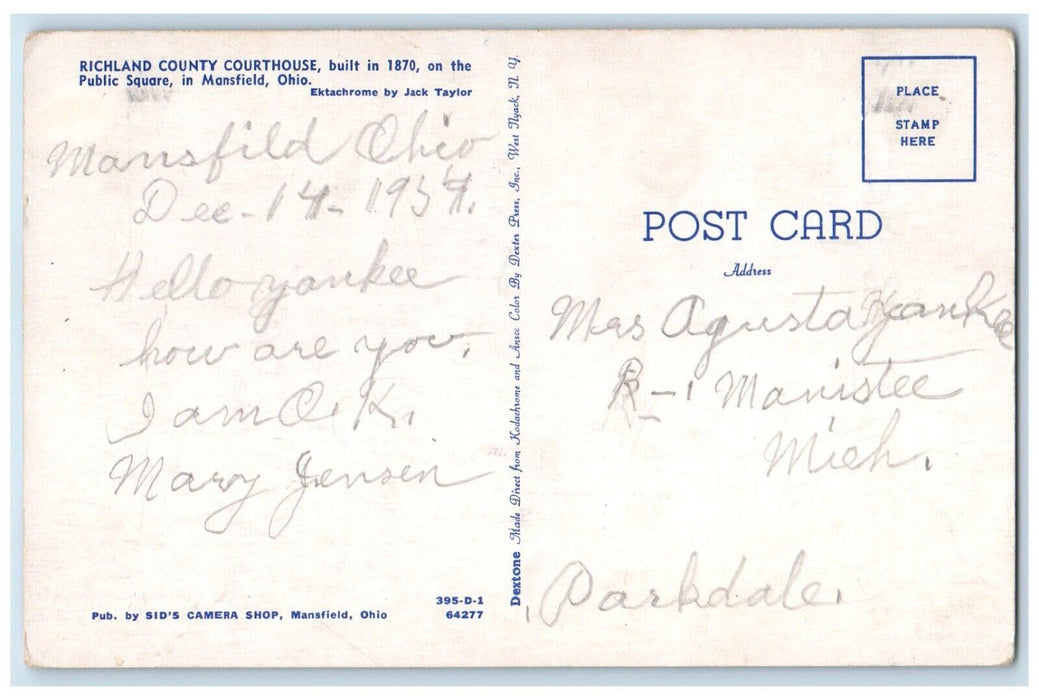 RICHLAND COUNTY COURTHOUSE, built in 1870, on the
Public Square, in Mansfield, Ohio.
Ektachrome by Jack Taylor
Mansfild Ohio
Dec-14-1954.
Hello yankee
how are you.
I am O.K.
Mary Jensen
395-D-1
Pub. by SID'S CAMERA SHOP, Mansfield, Ohio 64277
Dextone Made Direct from Kodachrome and Ansco Color By Dexter Press, Inc., West Nyack, N. Y.
PLACE
STAMP
HERE
POST CARD
Address
Mrs Agusta Yankee
R-1 Manistee
Mich.
Parkdale.